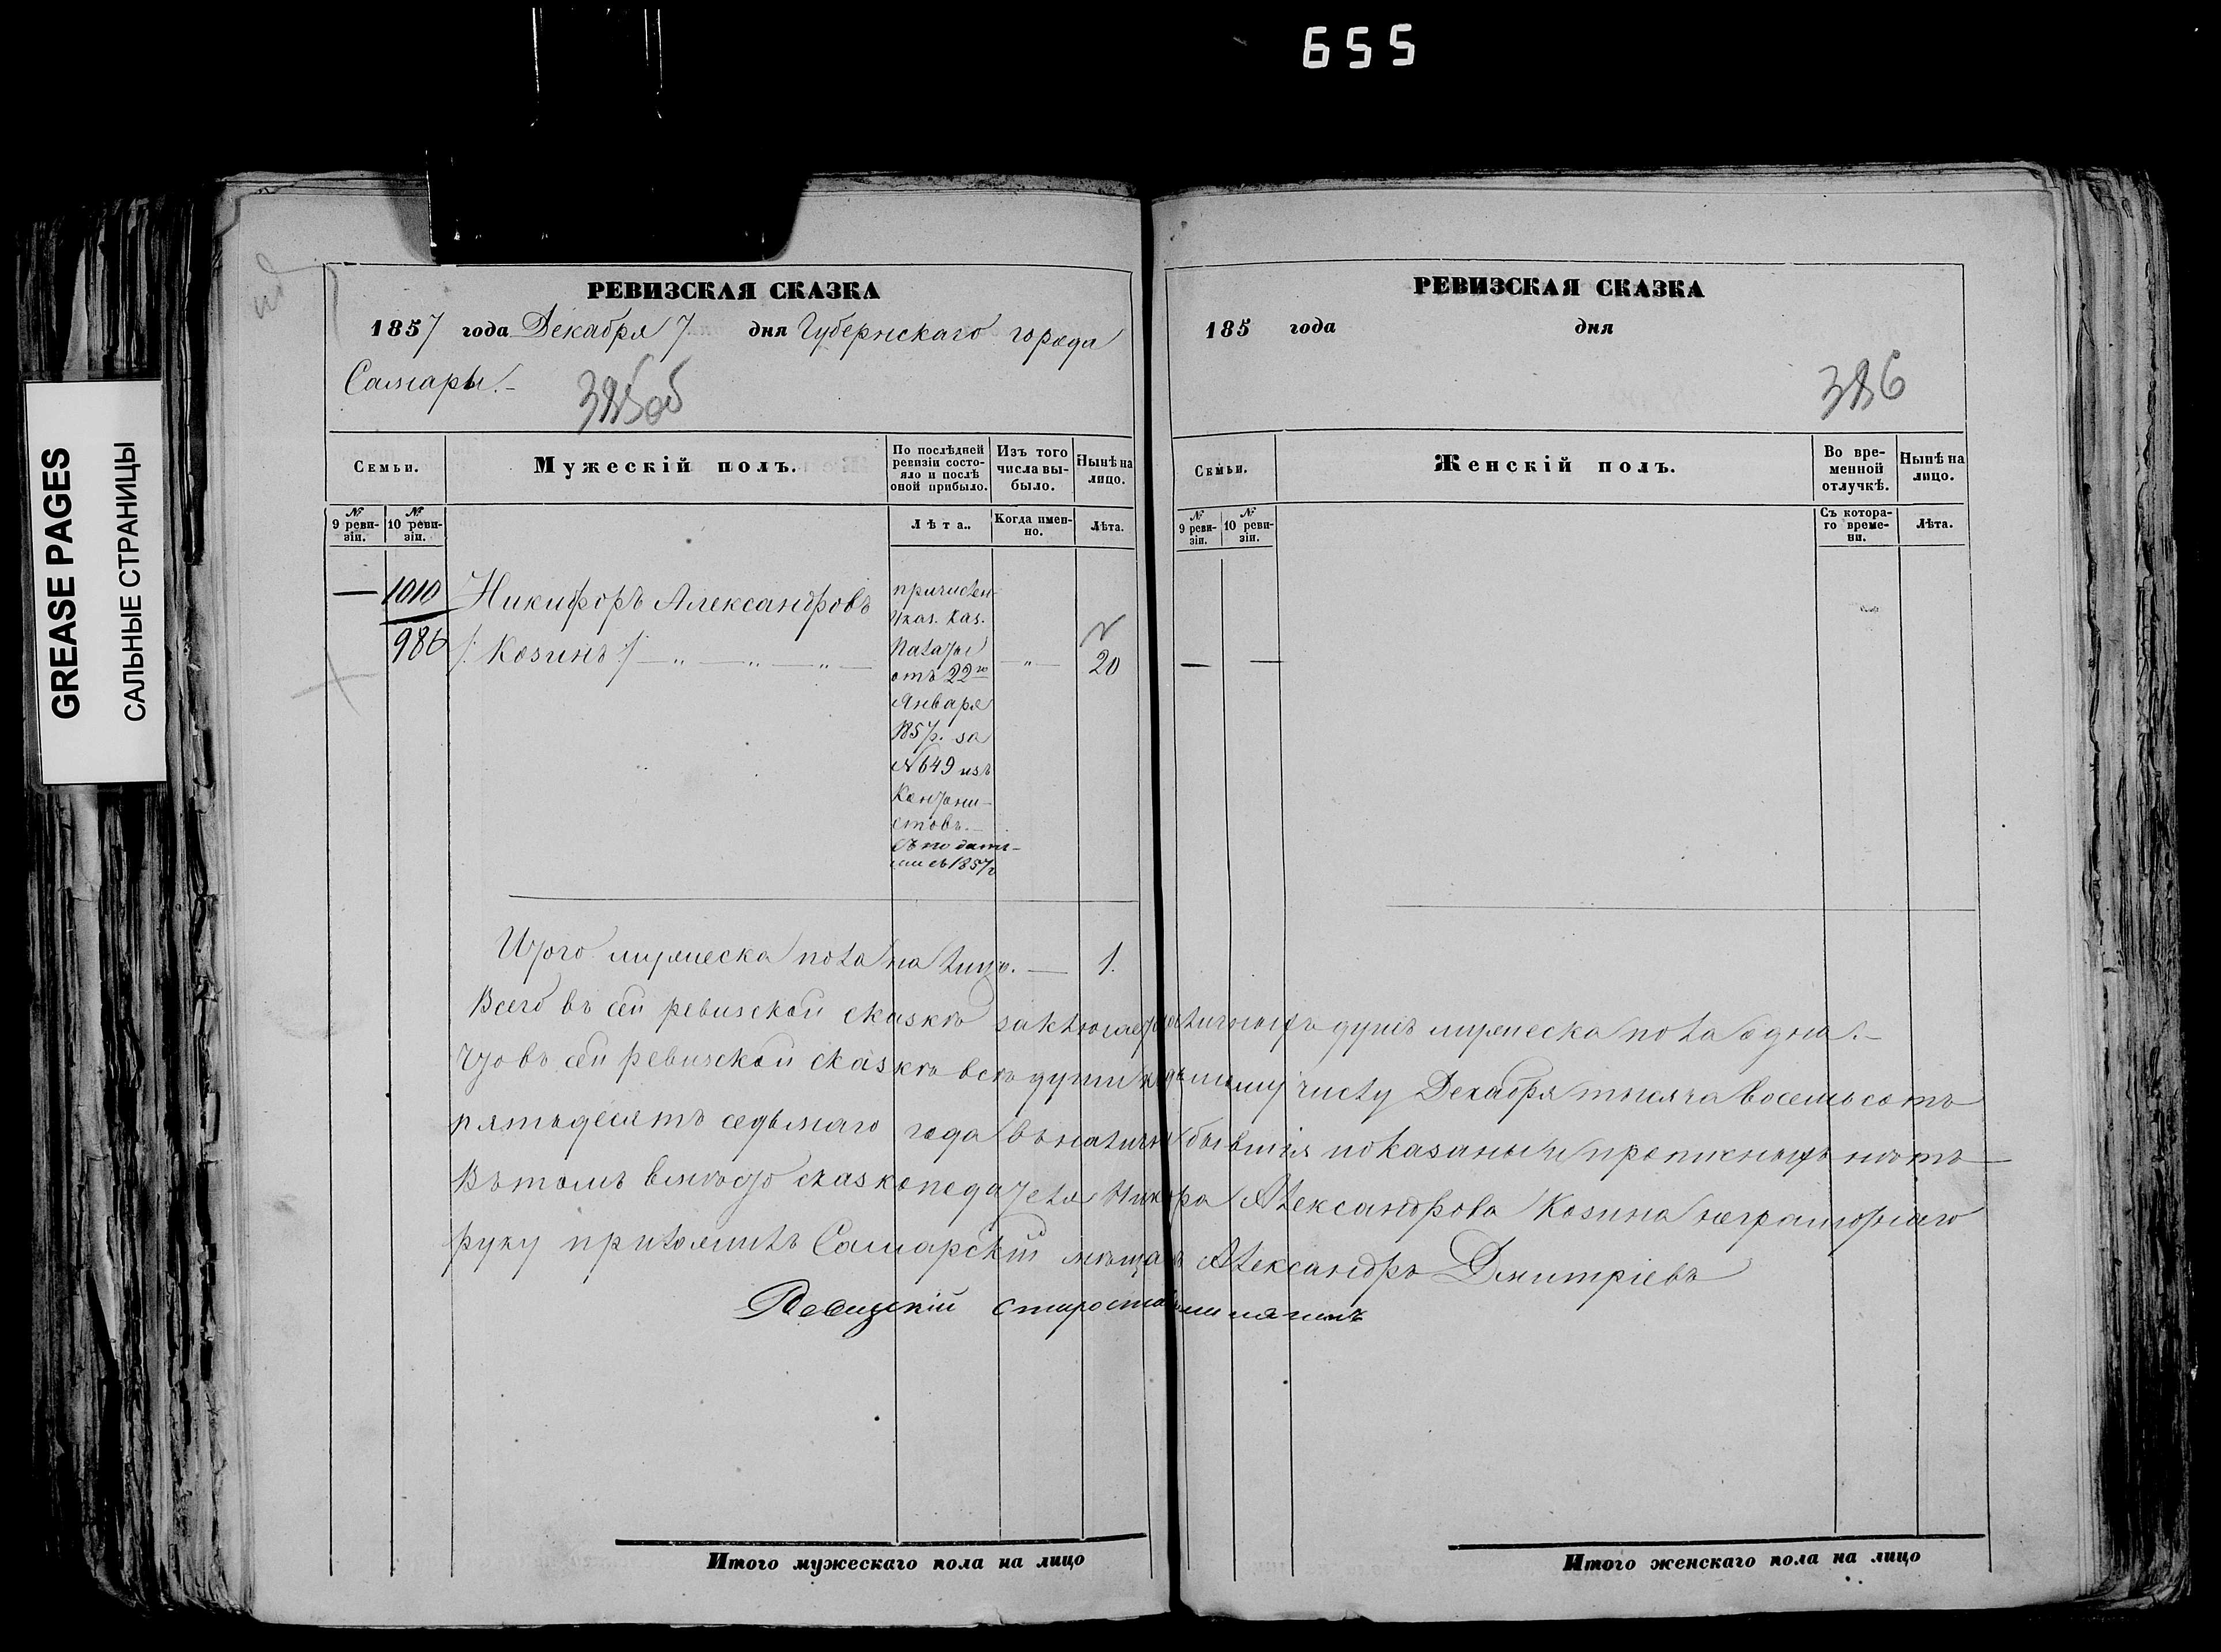 655
GREASE PAGES
САЛЬНЫЕ СТРАНИЦЫ
РЕВИЗСКАЯ СКАЗКА
1857 года Декабря 7 дня Губернскаго города
Самары.-
385об
Семьи.
Мужескій полъ.
По послѣдней ревизіи состояло и послѣ оной прибыло.
Изъ того числа выбыло.
Нынѣ на лицо.
№ 9 ревизіи.
№ 10 ревизіи.
Лѣта.
Когда именно.
Лѣта.
— 1010 Никифоръ Александровъ
986 /: Козинъ :/ — „ — „ — „ —
причислен
Указ. Каз.
Палаты
отъ 22го
Января
1857г. за
№ 649 изъ
Кантони-
стовъ.-
съ подать-
ми съ 1857г
— „ —
20
Итого мужеска пола на лицо. — 1.
РЕВИЗСКАЯ СКАЗКА
185 года дня
386
Семьи.
Женскій полъ.
Во временной отлучкѣ.
Нынѣ на лицо.
№ 9 ревизіи.
№ 10 ревизіи.
Съ котораго времени.
Лѣта.
— —
Всего въ сей ревизской сказкѣ заключается наличныхъ душъ мужеска пола одна.-
Что въ сей ревизской сказкѣ всѣ души къ седьмому числу Декабря тысяча восемьсотъ
пятьдесятъ седьмаго года въ наличіи бывшія показаны и прописныхъ нѣтъ —
Въ томъ вмѣсто сказкоподателя Никфора Александрова Козина неграмотнаго
руку приложилъ Самарскій мѣщан Александръ Дмитріевъ
Ревизскій староста
Итого мужескаго пола на лицо
Итого женскаго пола на лицо